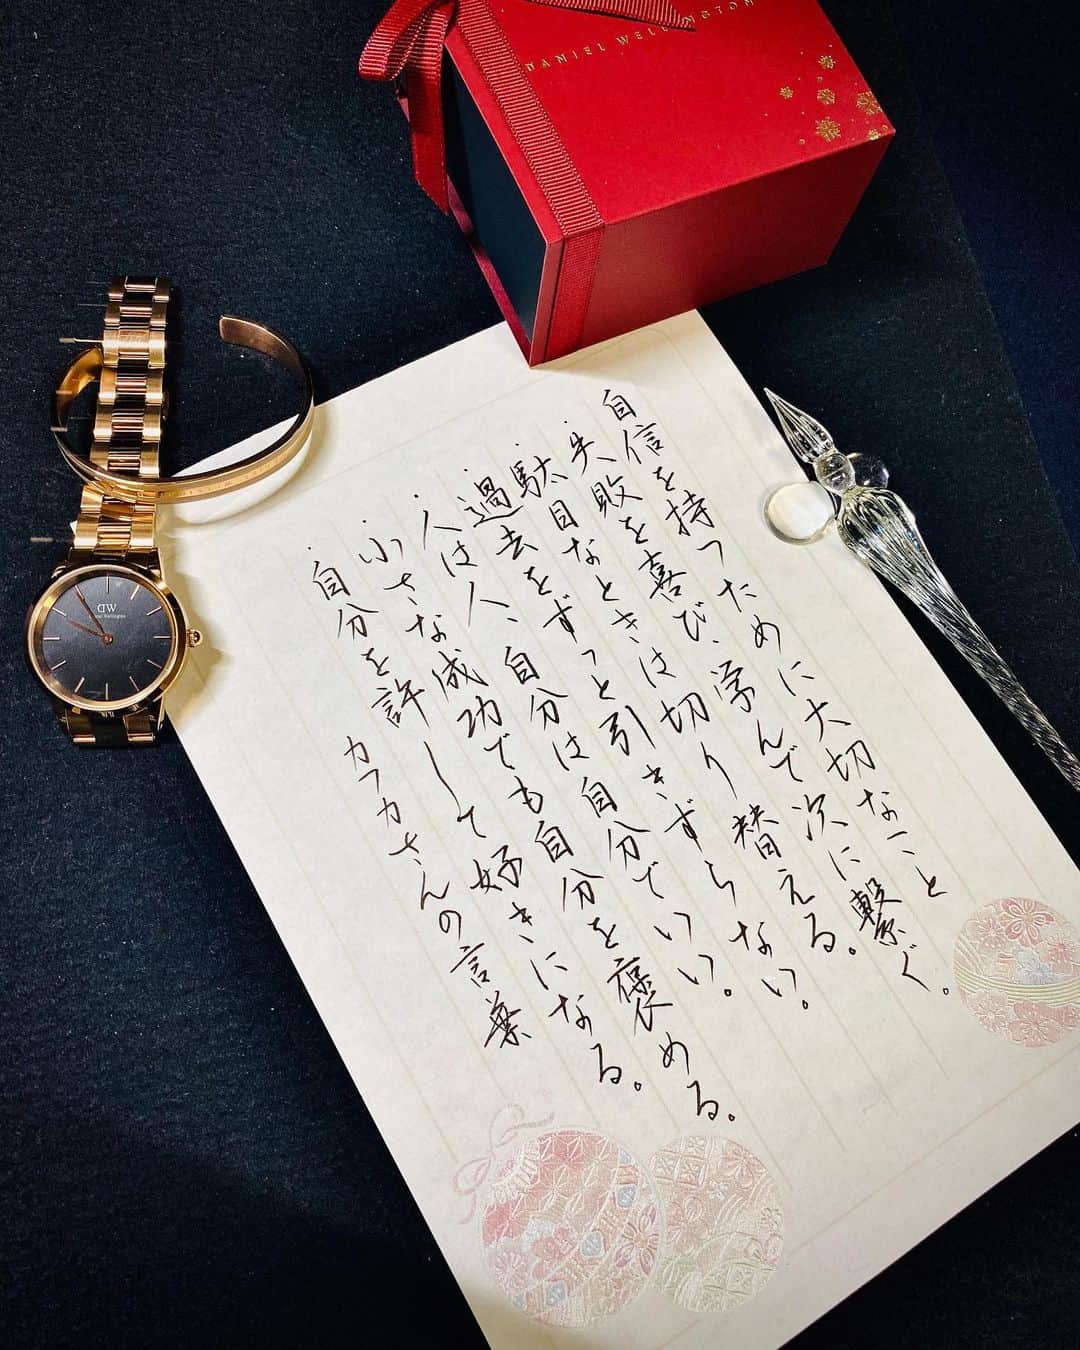 DANIEL WELLINGTON
自信を持つために大切なこと
・失敗を喜び、学んで次に繋ぐ。
・駄目なときは切り替える。
・過去をずっと引きずらない。
・人は人、自分は自分でいい。
・小さな成功でも自分を褒める。
・自分を許して好きになる。
カフカさんの言葉
DW
Daniel Wellington